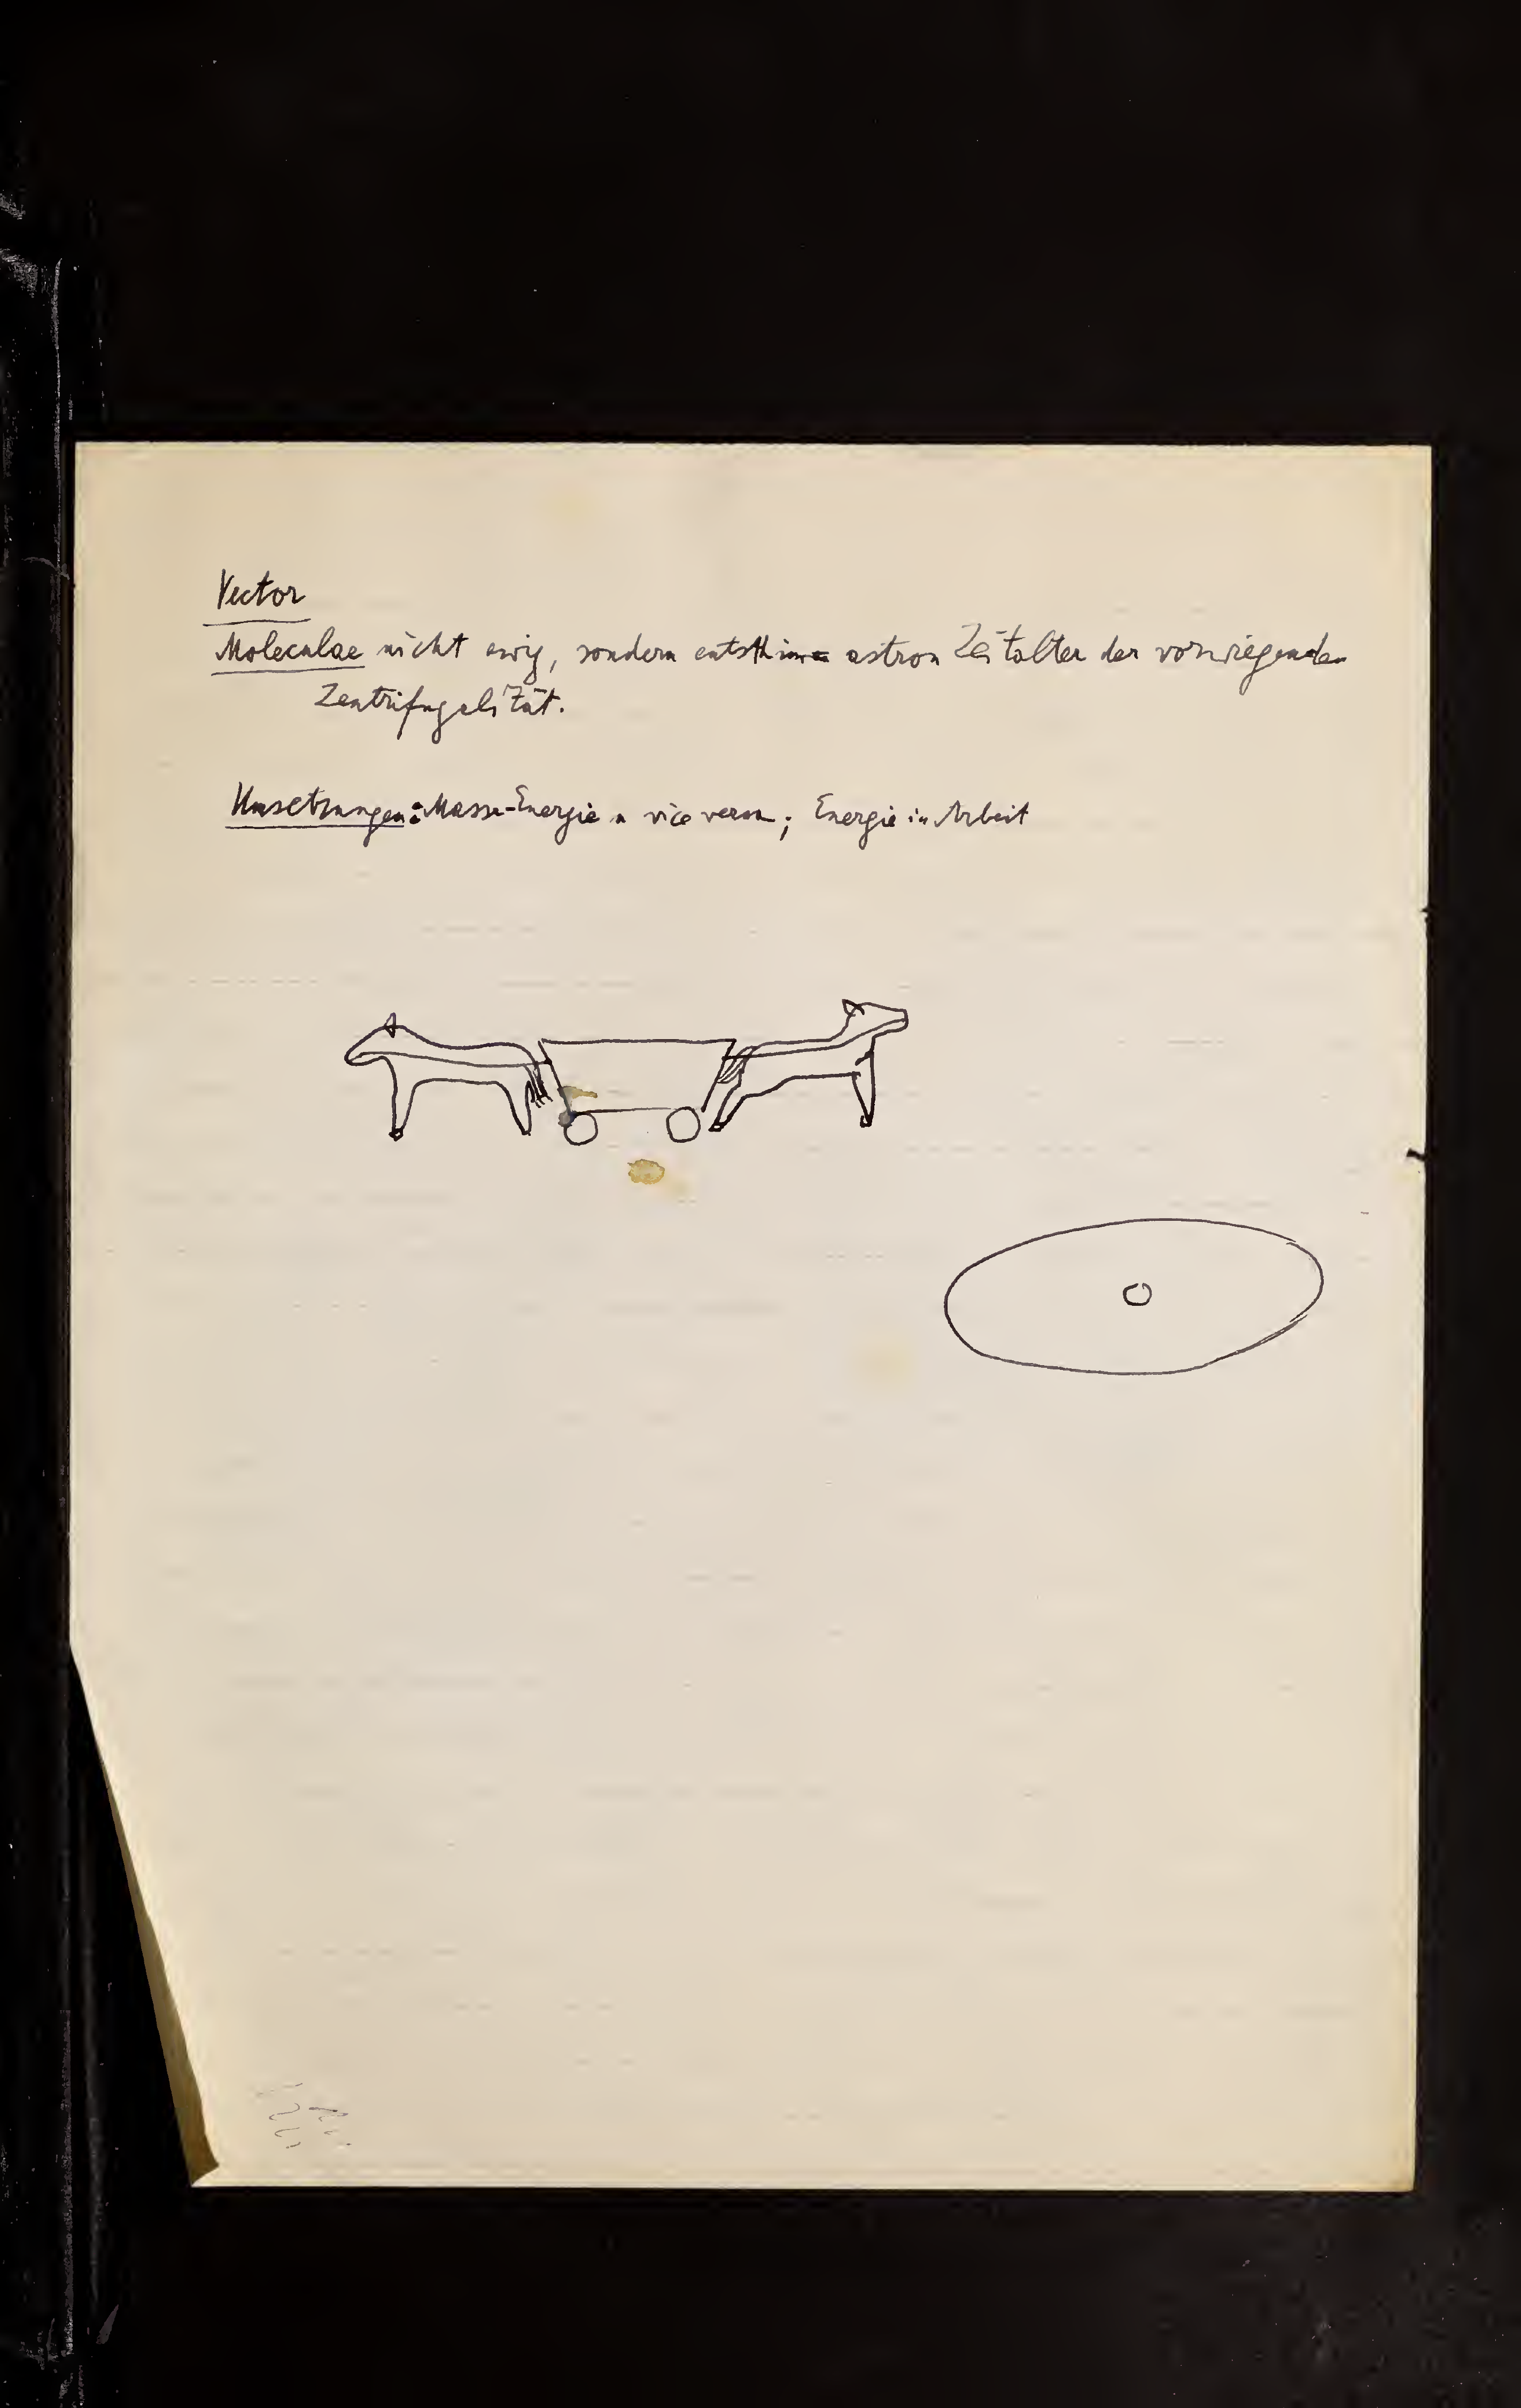 Vector
Moleculae nicht ewig, sondern entsth im astron Zeitalter der vorwiegenden
Zentrifugalität.
Umsetzungen: Masse-Energie u vice versa; Energie in Arbeit